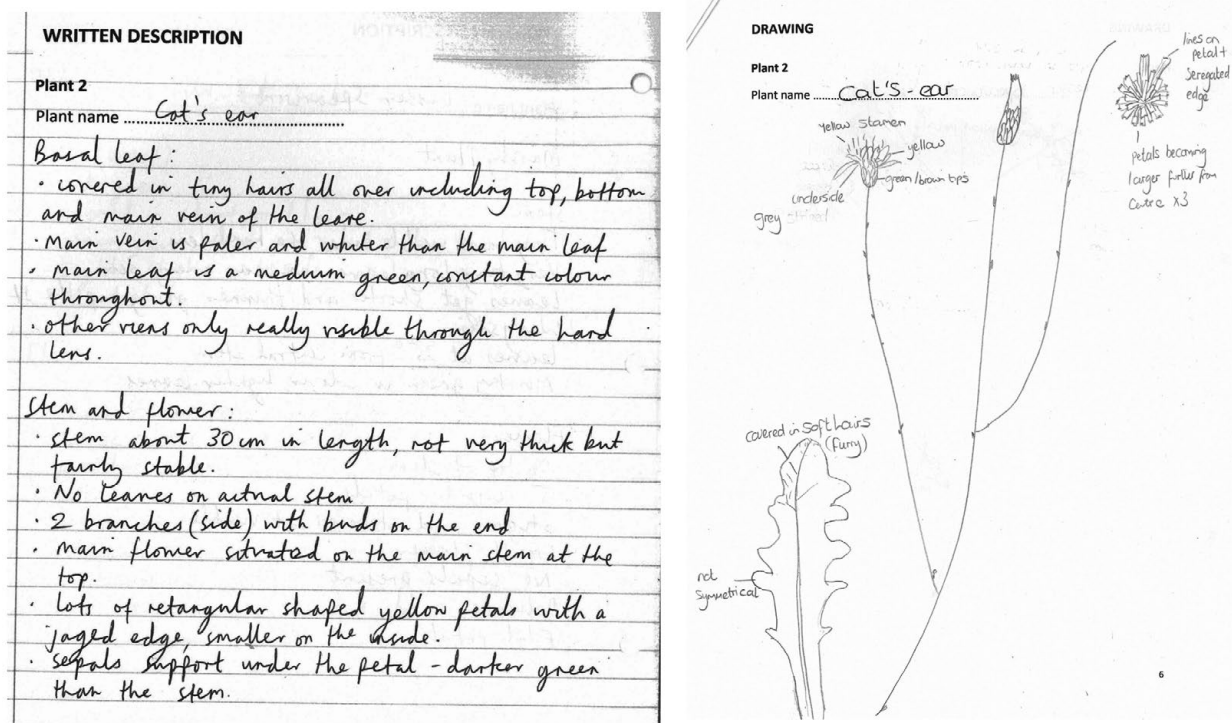 WRITTEN DESCRIPTION
Plant 2
Plant name Cat's ear
Basal leaf:
· covered in tiny hairs all over including top, bottom
and main vein of the leave.
· Main vein is paler and whiter than the main leaf
· main leaf is a medium green, constant colour
throughout.
· other viens only really visible through the hand
lens.
Stem and flower:
· stem about 30cm in length, not very thick but
fairly stable.
· No leaves on actual stem
· 2 branches (side) with buds on the end
· main flower situated on the main stem at the
top.
· lots of retangular shaped yellow petals with a
jaged edge, smaller on the inside.
· sepals support under the petal - darker green
than the stem.
DRAWING
Plant 2
Plant name Cat's - ear
yellow stamen
yellow
green/brown tips
underside
grey
lines on
petal +
seregated
edge
petals becoming
larger further from
centre x3
covered in soft hairs
(furry)
not
symmetrical
6